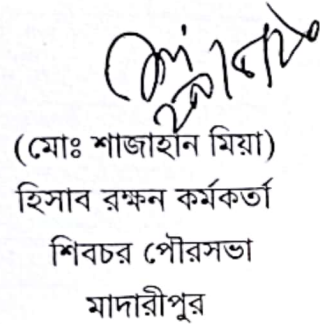 (মোঃ শাজাহান মিয়া)
হিসাব রক্ষন কর্মকর্তা
শিবচর পৌরসভা
মাদারীপুর